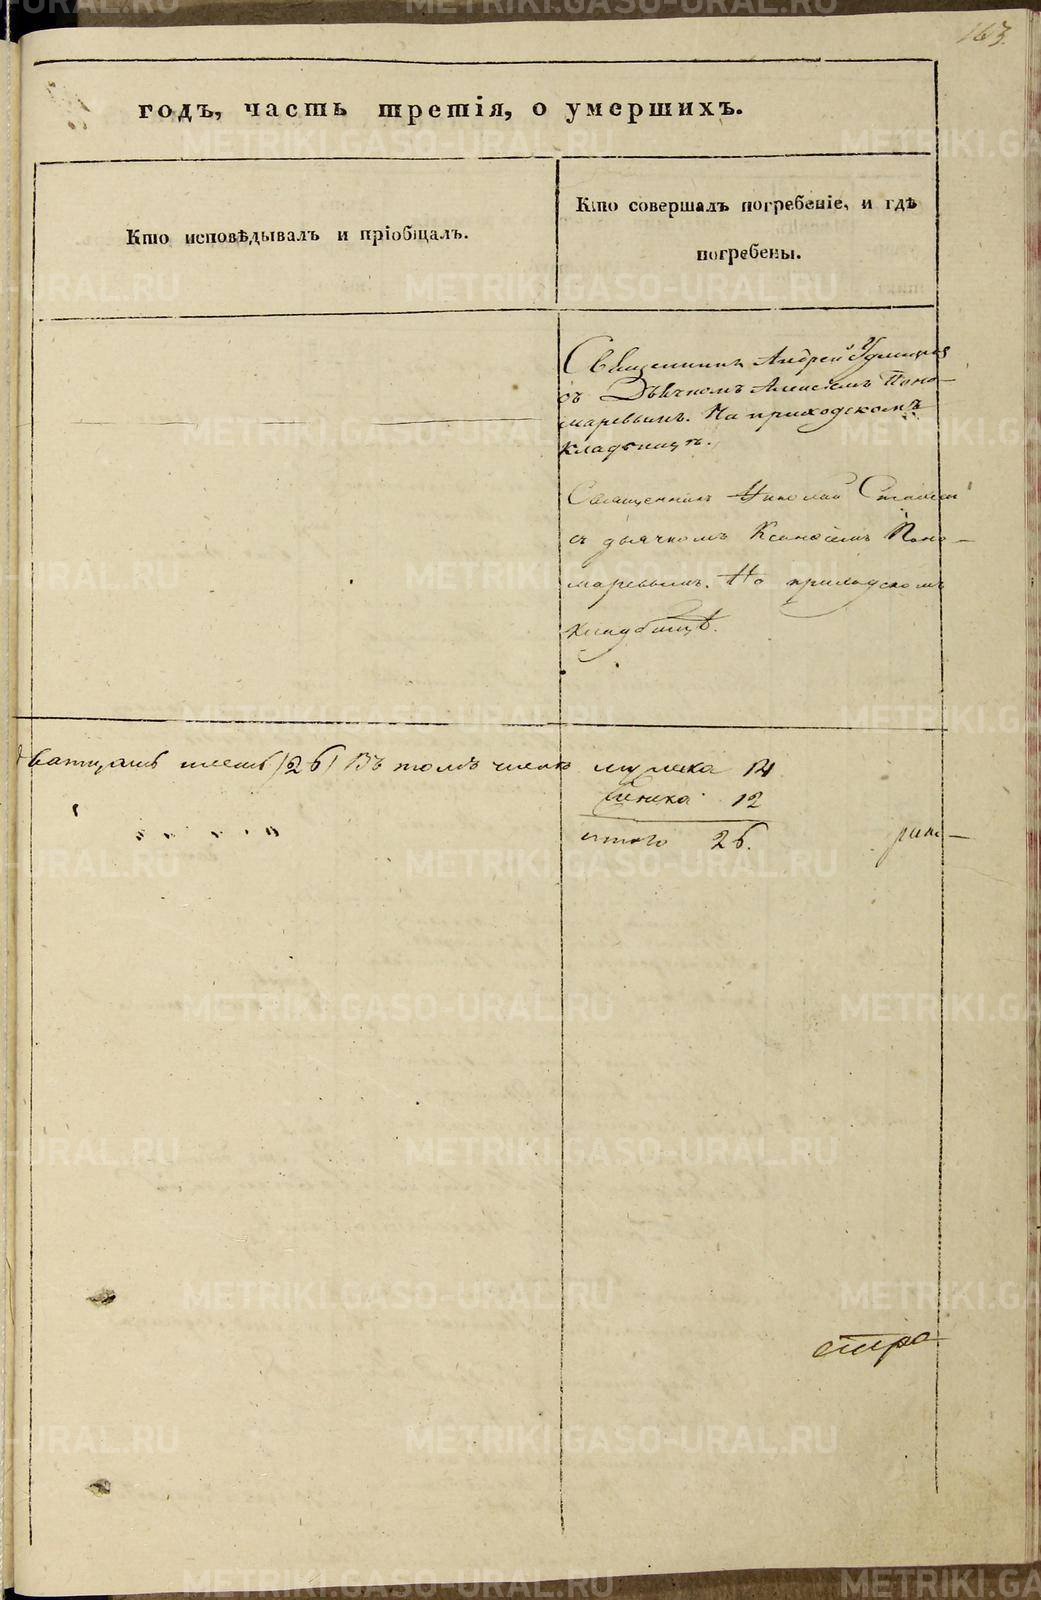 163.
годъ, часть третія, о умершихъ.
Кто исповѣдывалъ и пріобщалъ.
Кто совершалъ погребеніе, и гдѣ
погребены.
Священникъ Андрей Удинцев
съ Дьячкомъ Алексѣемъ Поно-
маревымъ. На приходскомъ
кладбищѣ.
Священникъ Николай
съ дьячкомъ Поно-
маревымъ. На приходскомъ
кладбищѣ.
дватцать шесть (26) Въ томъ числѣ мужеска 14
женска 12
итого 26.
стра
METRIKI.GASO-URAL.RU